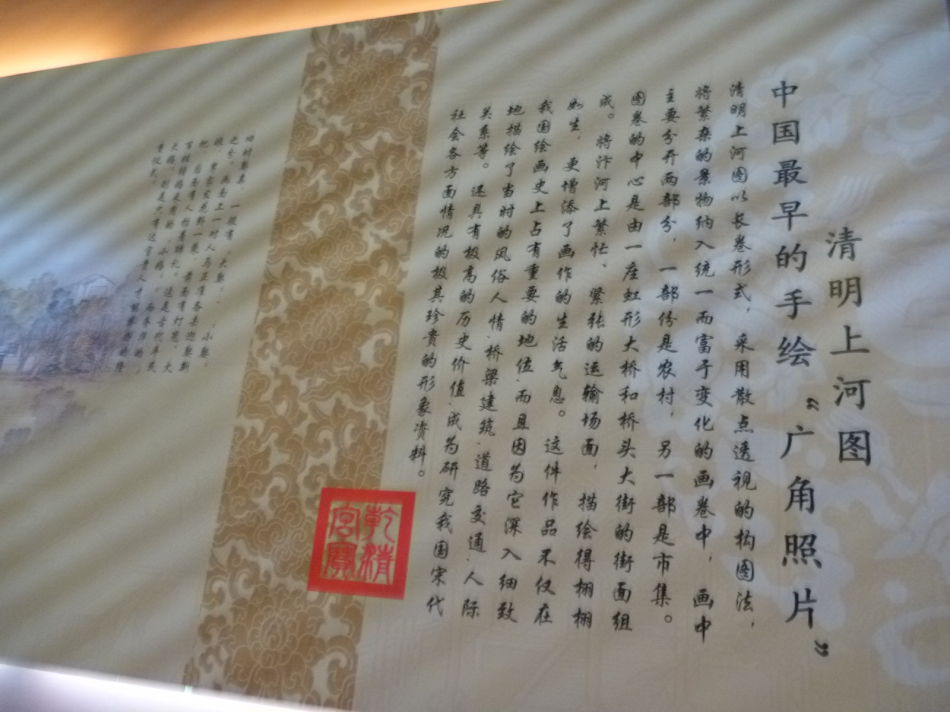 清明上河图
中国最早的手绘“广角照片”
清明上河图以长卷形式，采用散点透视的构图法，
将繁杂的景物纳入统一而富于变化的画卷中，画中
主要分开两部分，一部份是农村，另一部是市集。
图卷的中心是由一座虹形大桥和桥头大街的街面组
成。将汴河上繁忙、紧张的运输场面，描绘得栩栩
如生，更增添了画作的生活气息。这件作品不仅在
我国绘画史上占有重要的地位.而且因为它深入细致
地描绘了当时的风俗人情.桥梁建筑.道路交通.人际
关系等。还具有极高的历史价值.成为研究我国宋代
社会各方面情况的极其珍贵的形象资料。
乾清
宮寶